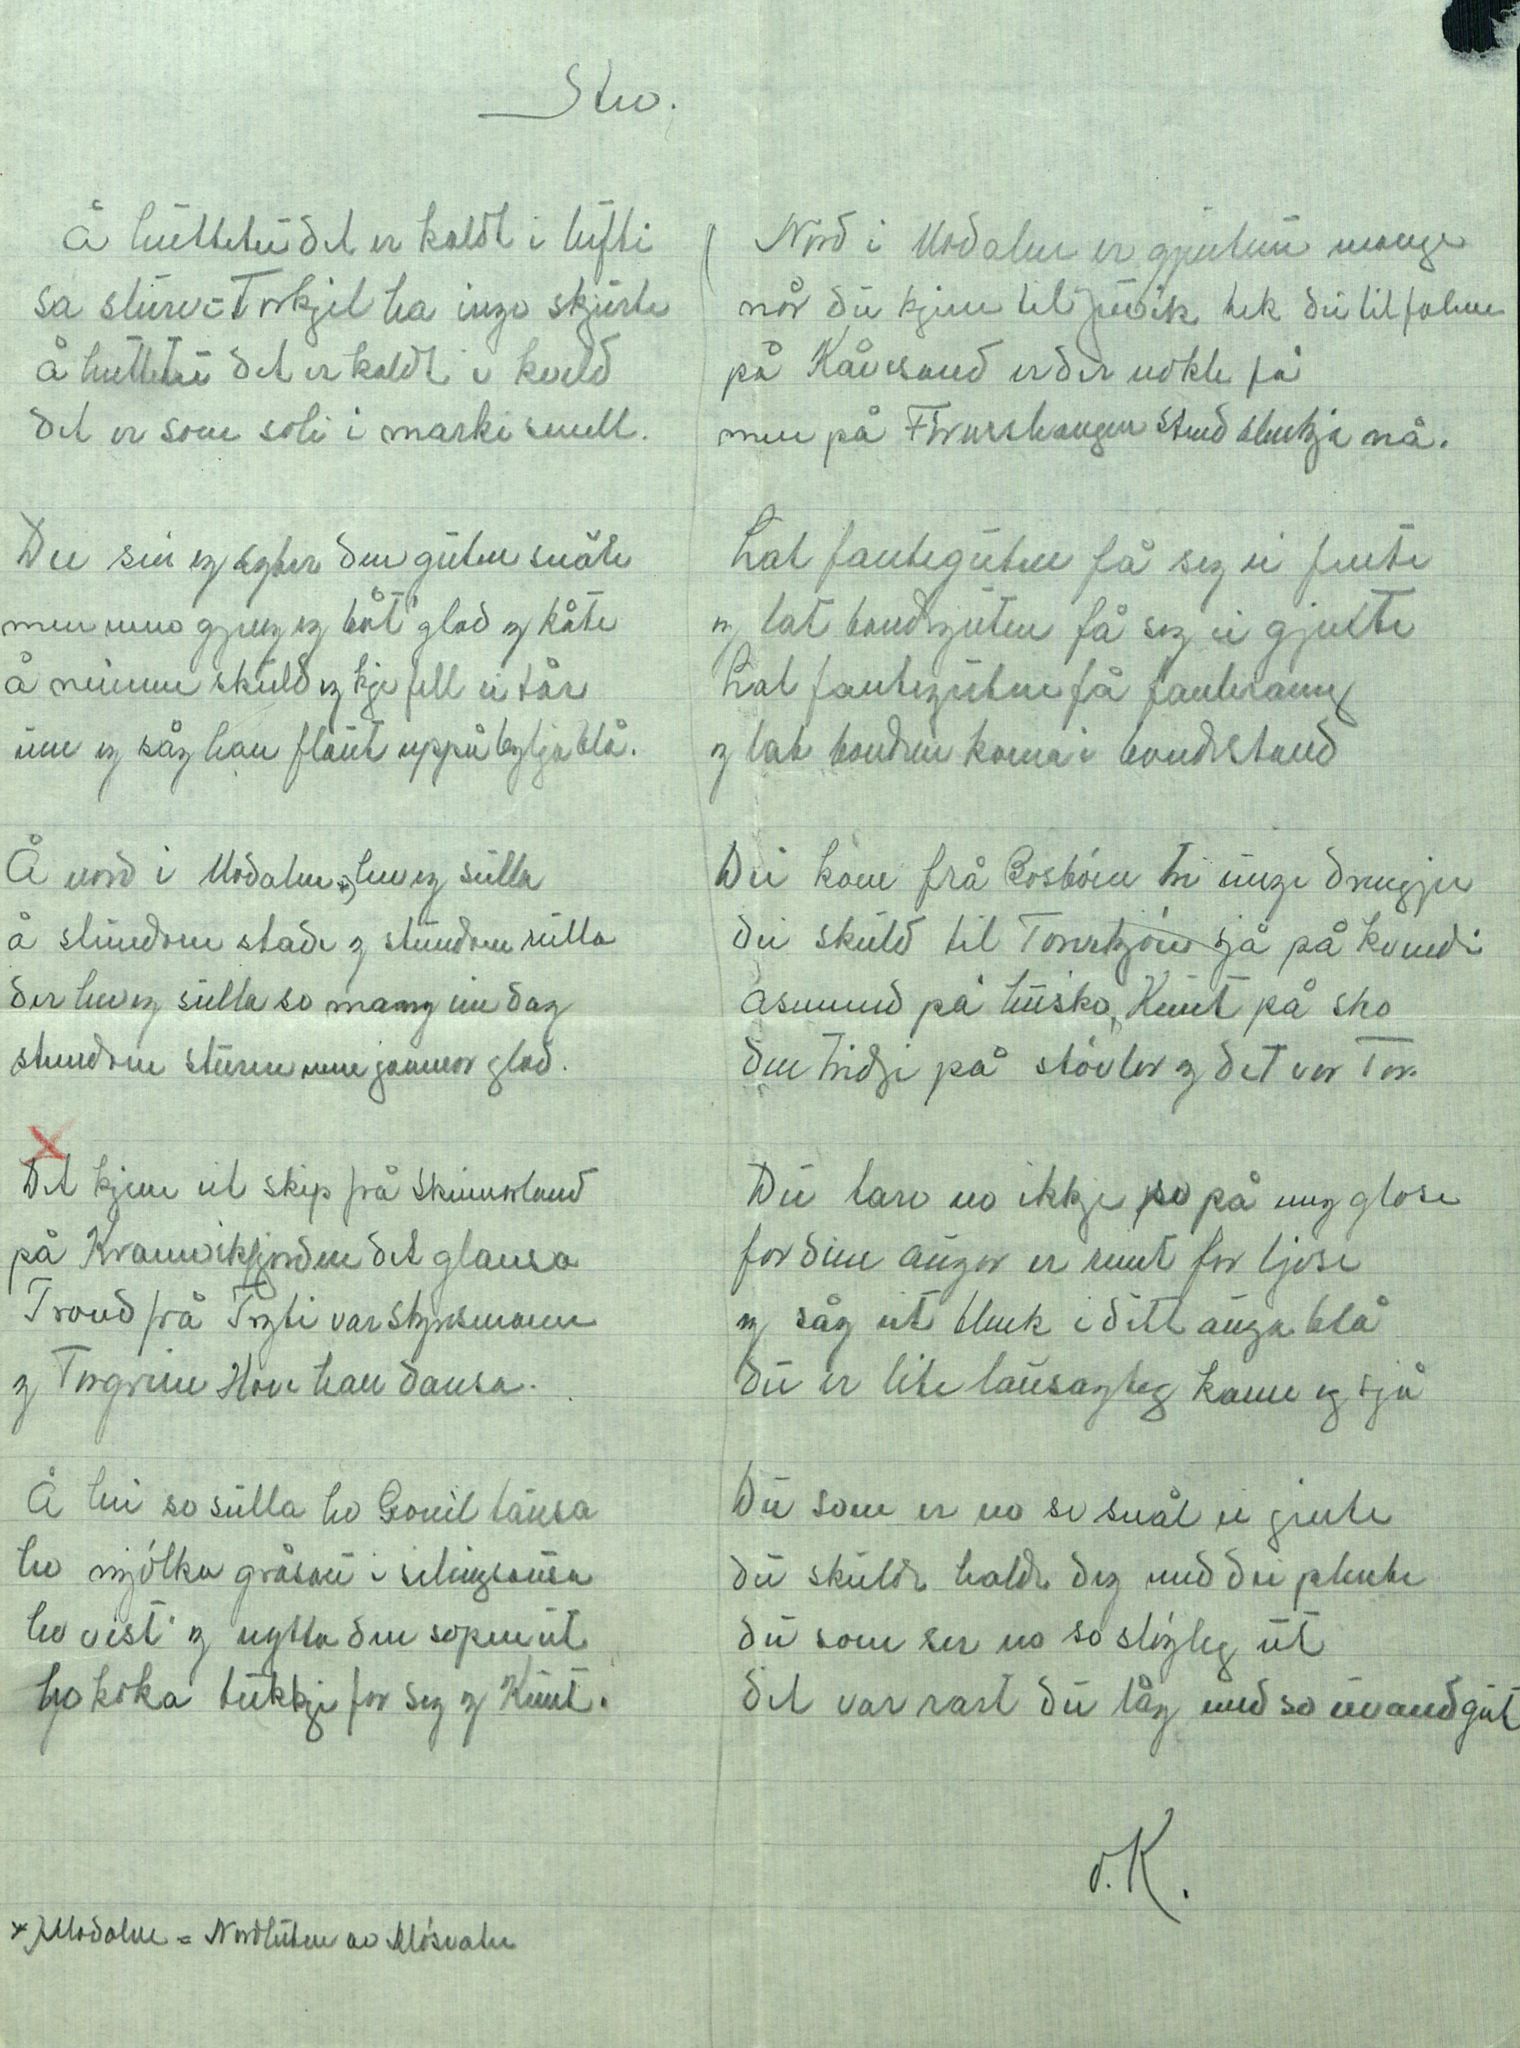 Stev.
Å huttetu det er kaldt i lufti
sa sturve-Torkjel ha inga skjurte
å huttetu det er kaldt i kveld
det er som soli i marki smell.
Dei sier eg lygter den guten snåle
men eg båt' glad og kåte
å minnne skuld eg kje fell ei tår
um eg såg han flaut uppå bylja blå.
Å nord i Modalen *) hev eg sulla
å stundom stade og stundom rulla
der hev eg sulla so mang ein dag
stundom sturen men jamnar glad.
Det kjem eit skip frå Skinnarland
på Kromvikfjorden det glansa
Trond frå Tryti var styrsmann
og Torgrim Hove han dansa.
Å hei so sulla ho Gonil lausa
ho mjólka gråsau i silingsausa
ho vist' og nytta den sopen ut
ho koka tukkje for seg og Knut.
Nord i Modalen er gjentun mange
når du kjem til Juvik tek du til falme
på Kåvesand er der nokle få
men på Fórnes haugen stend blenkja nå.
Lat fanteguten få seg ei fente
og lat bondeguten få seg ei gjente
Lat fanteguten få fanterang
og lat bonden koma i bondestand
Dei kom frå Gosbóen tri unge drengjer
dei skuld til Torvetjón sjå på kvende
Asmund på husko, Knut på sko
den tridje på stóvlar og det var Tor.
Du tarv no ikkje so på meg glose
for dine augor er reint for ljose
eg såg eit blenk i ditt auga blå
du er lite lausagteg kann eg sjå
Du som er no so snål ei gjente
du skulde halde deg med dei plente
du som ser no so slógleg ut
det var rart du låg med so uvand gut
O.K.
*) Modalen = Nordluten av Mósvatn